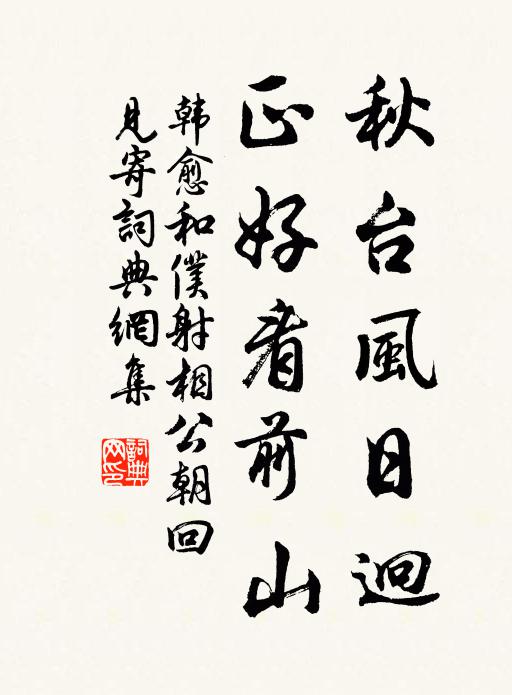 秋台風日迥
正好看前山
韩愈和僕射相公朝回
見寄詞典網集
詞典
网印